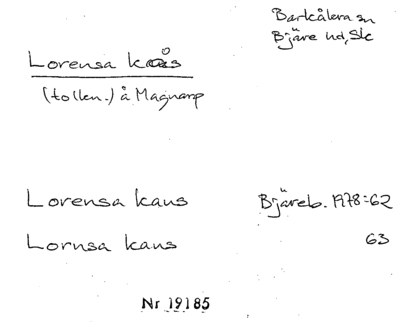 Barkåkra sn
Bjäre hd, Sk
Lorensa kås
(tolkn.) å Magnarp
Lorensa kaus Bjäreb. 1978:62
Lornsa kaus 63
Nr 19185